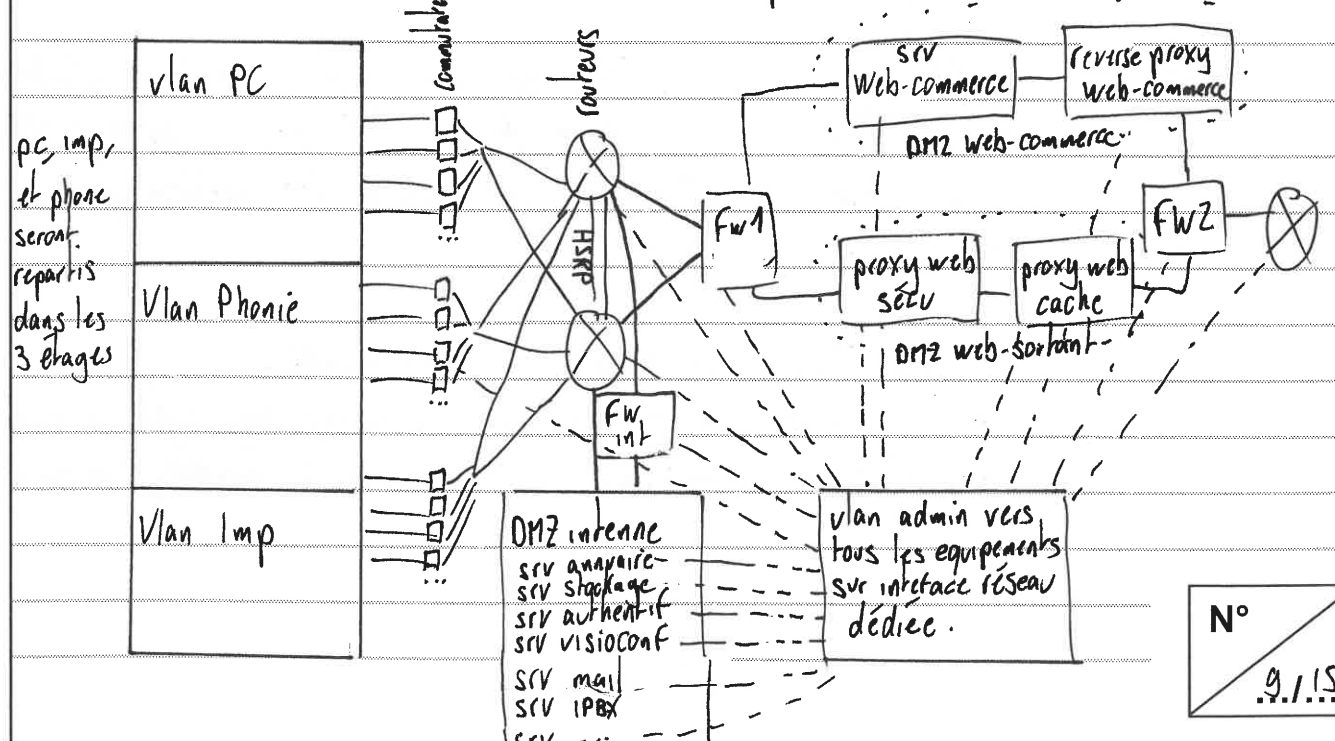 vlan PC
pc, imp,
et phone
seront
repartis
dans les
3 étages
Vlan Phonie
Vlan Imp
routeurs
HSRP
FW1
srv
Web-commerce
reverse proxy
web-commerce
DMZ web-commerce
FW2
proxy web
sécu
proxy web
cache
DMZ web-sortant
FW
int
DMZ interne
srv annuaire
srv stockage
srv authentif
srv visioconf
srv mail
srv IPBX
srv
vlan admin vers
tous les equipements
sur interface réseau
dédiée.
N°
9/15